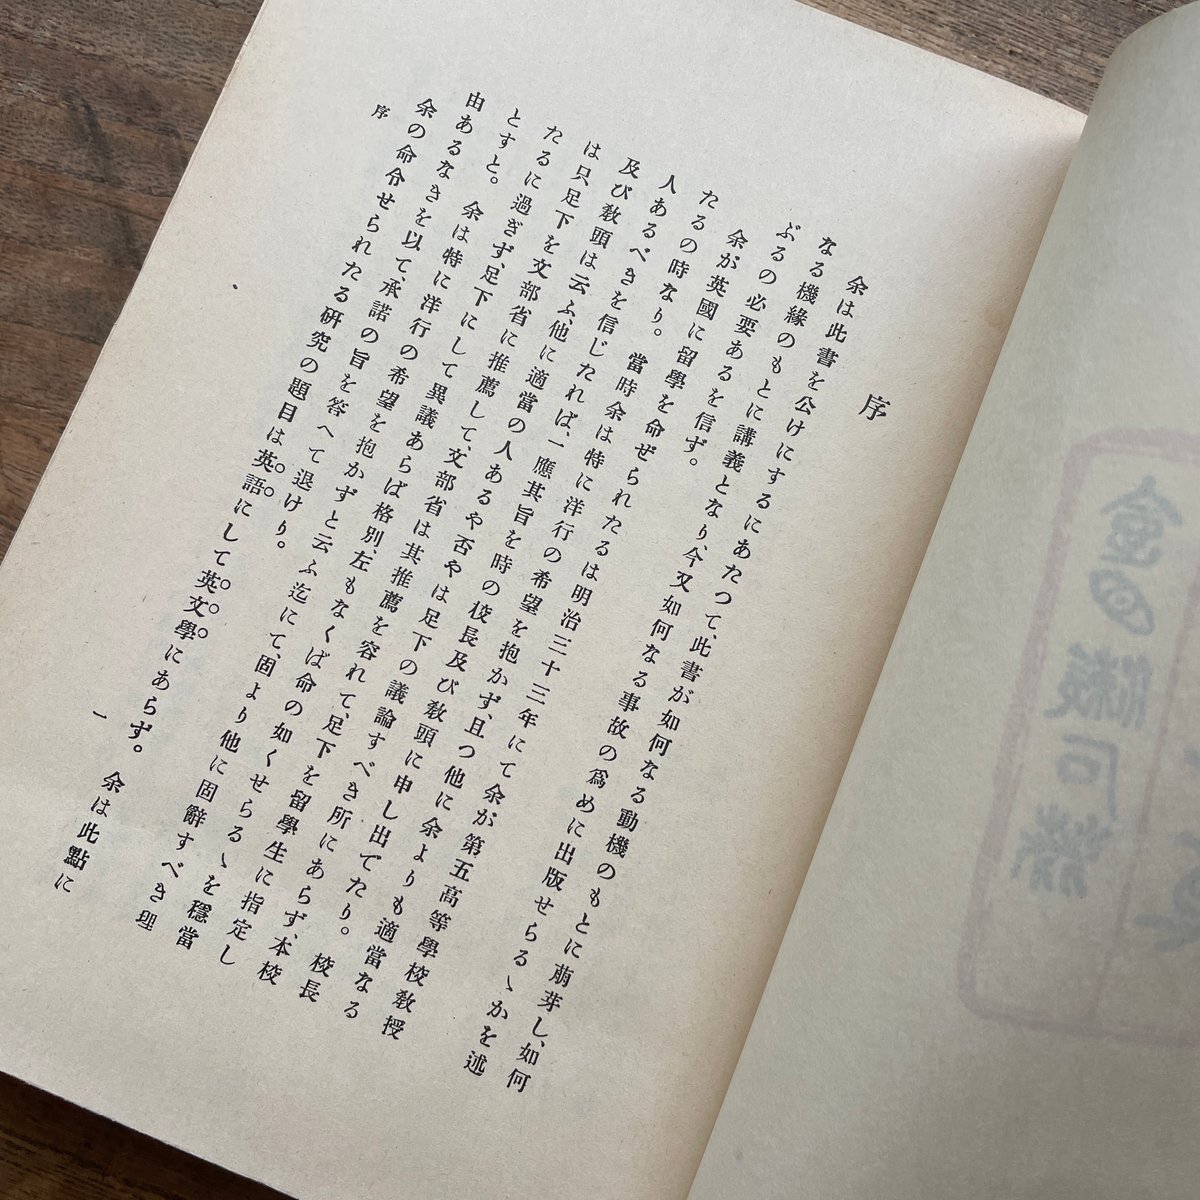 序
余は此書を公けにするにあたつて、此書が如何なる動機のもとに萠芽し、如何
なる機緣のもとに講義となり、今又如何なる事故の爲めに出版せらるゝかを述
ぶるの必要あるを信ず。
余が英國に留學を命ぜられたるは明治三十三年にて余が第五高等學校敎授
たるの時なり。當時余は特に洋行の希望を抱かず、且つ他に余よりも適當なる
人あるべきを信じたれば、一應其旨を時の校長及び敎頭に申し出でたり。校長
及び敎頭は云ふ、他に適當の人あるや否やは足下の議論すべき所にあらず、本校
は只足下を文部省に推薦して、文部省は其推薦を容れて、足下を留學生に指定し
たるに過ぎず、足下にして異議あらば格別、左もなくば命の如くせらるゝを穩當
とすと。余は特に洋行の希望を抱かずと云ふ迄にて、固より他に固辭すべき理
由あるなきを以て、承諾の旨を答へて退けり。
余の命令せられたる硏究の題目は英語にして英文學にあらず。余は此點に
序
一